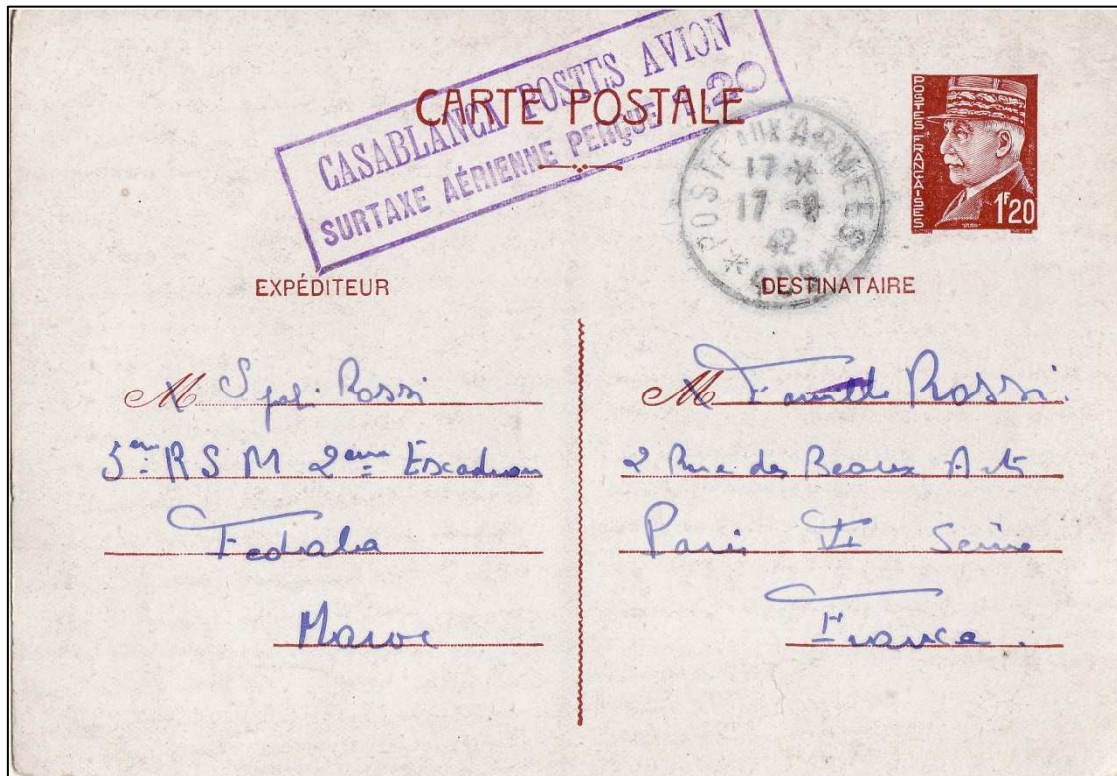 CASABLANCA POSTES AVION
SURTAXE AÉRIENNE PERÇUE 1,20
CARTE POSTALE
POSTE AUX ARMEES
17 *
17 -8
42
* 505 *
POSTES FRANÇAISES
1F20
EXPÉDITEUR
DESTINATAIRE
M Rossi
3ème R S M 2ème Escadron
Fedhala
Maroc
M Famille Rossi.
2 Rue des Beaux Arts
Paris VI Seine
France.